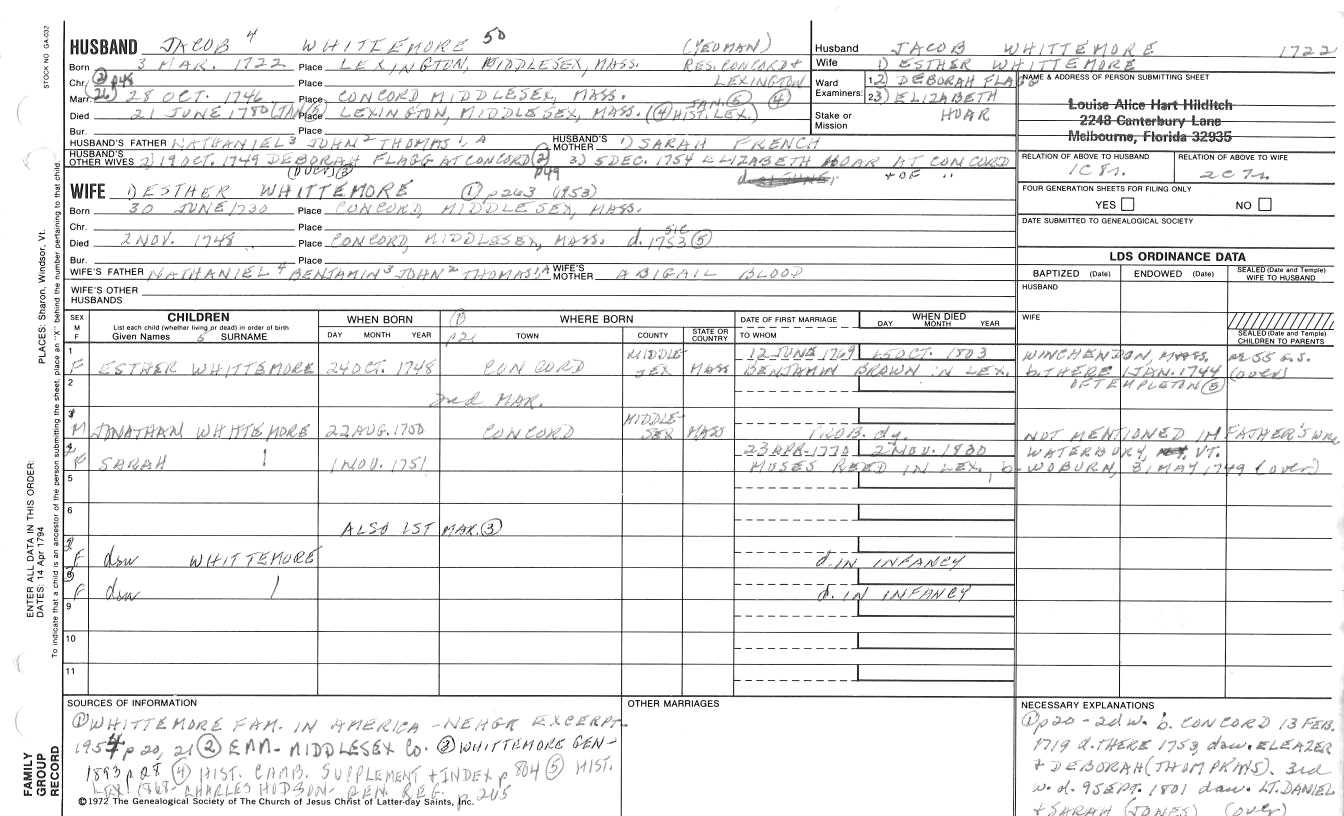 STOCK NO GA-032
HUSBAND JACOB 4 WHITTEMORE 50 (YEOMAN)
Born 3 MAR. 1722 Place LEXINGTON, MIDDLESEX, MASS. RES. CONCORD +
Chr. (2) p48 Place LEXINGTON
Marr. (26) 28 OCT. 1746 Place CONCORD MIDDLESEX, MASS. JAN. (5) (4)
Died 21 JUNE 1780 (JAN (5)) Place LEXINGTON, MIDDLESEX, MASS. (4) HIST. LEX.)
Bur. Place
HUSBAND'S FATHER NATHANIEL 3 JOHN 2 THOMAS 1, A HUSBAND'S MOTHER 1) SARAH FRENCH
HUSBAND'S OTHER WIVES 2) 19 OCT. 1749 DEBORAH FLAGG AT CONCORD (2) 3) 5 DEC. 1754 ELIZABETH HOAR AT CONCORD
(OVER) (3) p49 + OF "
WIFE 1) ESTHER WHITTEMORE (1) p263 (1953)
Born 30 JUNE 1730 Place CONCORD, MIDDLESEX, MASS.
Chr. Place sic
Died 2 NOV. 1748 Place CONCORD, MIDDLESEX, MASS. d. 1753 (5)
Bur. Place
WIFE'S FATHER NATHANIEL 4 BENJAMIN 3 JOHN 2 THOMAS 1, A WIFE'S MOTHER ABIGAIL BLOOD
WIFE'S OTHER HUSBANDS
Husband JACOB WHITTEMORE 1722
Wife 1) ESTHER WHITTEMORE
Ward Examiners: 1. 2) DEBORAH FLAGG
2. 3) ELIZABETH
Stake or Mission HOAR
NAME & ADDRESS OF PERSON SUBMITTING SHEET
Louise Alice Hart Hilditch
2248 Canterbury Lane
Melbourne, Florida 32935
RELATION OF ABOVE TO HUSBAND RELATION OF ABOVE TO WIFE
1C 8r. 2C 7r.
FOUR GENERATION SHEETS FOR FILING ONLY
YES NO
DATE SUBMITTED TO GENEALOGICAL SOCIETY
LDS ORDINANCE DATA
BAPTIZED (Date) ENDOWED (Date) SEALED (Date and Temple) WIFE TO HUSBAND
HUSBAND
WIFE
SEALED (Date and Temple) CHILDREN TO PARENTS
SEX M F CHILDREN WHEN BORN (1) WHERE BORN DATE OF FIRST MARRIAGE WHEN DIED
List each child (whether living or dead) in order of birth
Given Names 5 SURNAME DAY MONTH YEAR p21 TOWN COUNTY STATE OR COUNTRY TO WHOM DAY MONTH YEAR
1 MIDDLE- 12 JUNE 1769 25 OCT. 1803 WINCHENDON, MASS.
F ESTHER WHITTEMORE 24 OCT. 1748 CONCORD SEX MASS BENJAMIN BROWN IN LEX. b. THERE 1 JAN. 1744 (over)
2 OF TEMPLETON (5)
2nd MAR.
M JONATHAN WHITTEMORE 22 AUG. 1750 CONCORD MIDDLE- SEX MASS PROB. dy. NOT MENTIONED IN FATHER'S WILL
23 APR. 1770 2 NOV. 1830 WATERBURY, VT.
F SARAH 1 NOV. 1751 MOSES REED IN LEX., b- WOBURN, 31 MAY 1749 (over)
5
6
ALSO 1ST MAR. (3)
F dau WHITTEMORE d. IN INFANCY
F dau d. IN INFANCY
9
10
11
SOURCES OF INFORMATION
(1) WHITTEMORE FAM. IN AMERICA - NEHGR EXCERPT-
1954 p 20, 21 (2) EMM- MIDDLESEX CO. (3) WHITTEMORE GEN-
1893 p 28 (4) HIST. CAMB. SUPPLEMENT + INDEX p 804 (5) HIST.
LEX. 1868- CHARLES HUDSON- GEN. REG. p 265
©1972 The Genealogical Society of The Church of Jesus Christ of Latter-day Saints, Inc.
OTHER MARRIAGES
NECESSARY EXPLANATIONS
(1) p20 - 2d w. b. CONCORD 13 FEB.
1719 d. THERE 1753, dau. ELEAZER
+ DEBORAH (THOMPKINS). 3rd
w. d. 9 SEPT. 1801 dau. LT. DANIEL
+ SARAH (JONES) (over)
PLACES: Sharon, Windsor, Vt.
ENTER ALL DATA IN THIS ORDER:
DATES: 14 Apr 1794
To indicate that a child is an ancestor of the person submitting the sheet, place an "X" behind the number pertaining to that child.
FAMILY GROUP RECORD